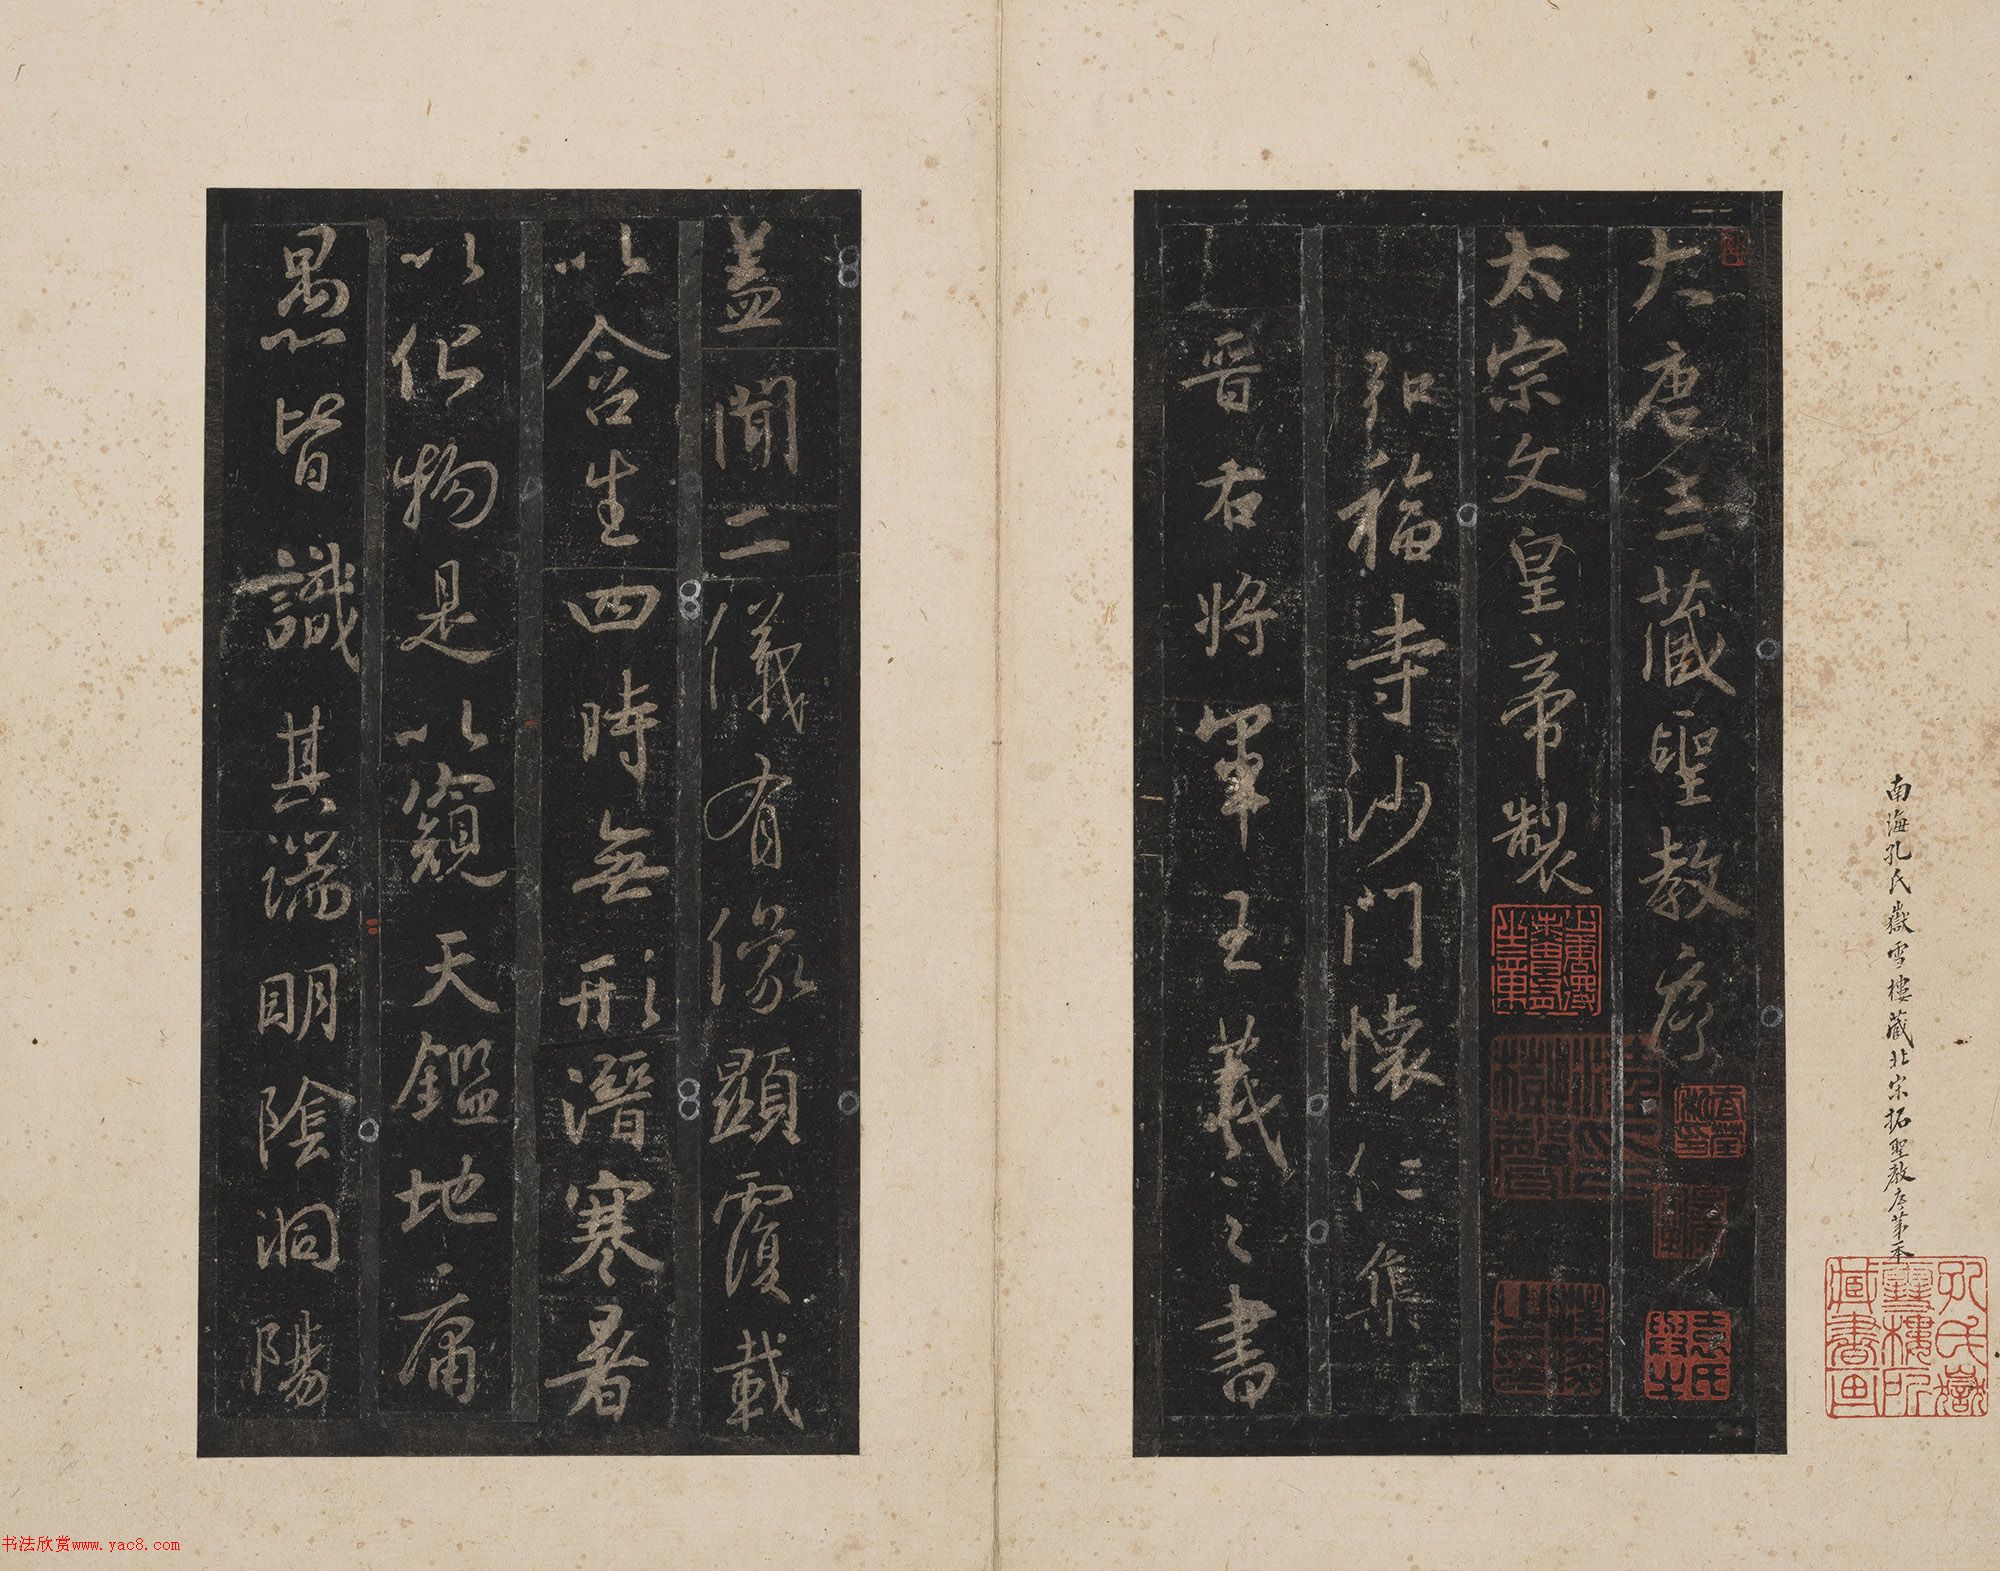 南海孔氏嶽雪樓藏北宋拓聖教序第一本
大唐三藏聖教序
太宗文皇帝製
弘福寺沙門懷仁集
晉右將軍王羲之書
蓋聞二儀有像顯覆載
以含生四時無形潛寒暑
以化物是以窺天鑑地庸
愚皆識其端明陰洞陽
孔氏嶽雪樓所藏書畫
书法欣赏www.yac8.com